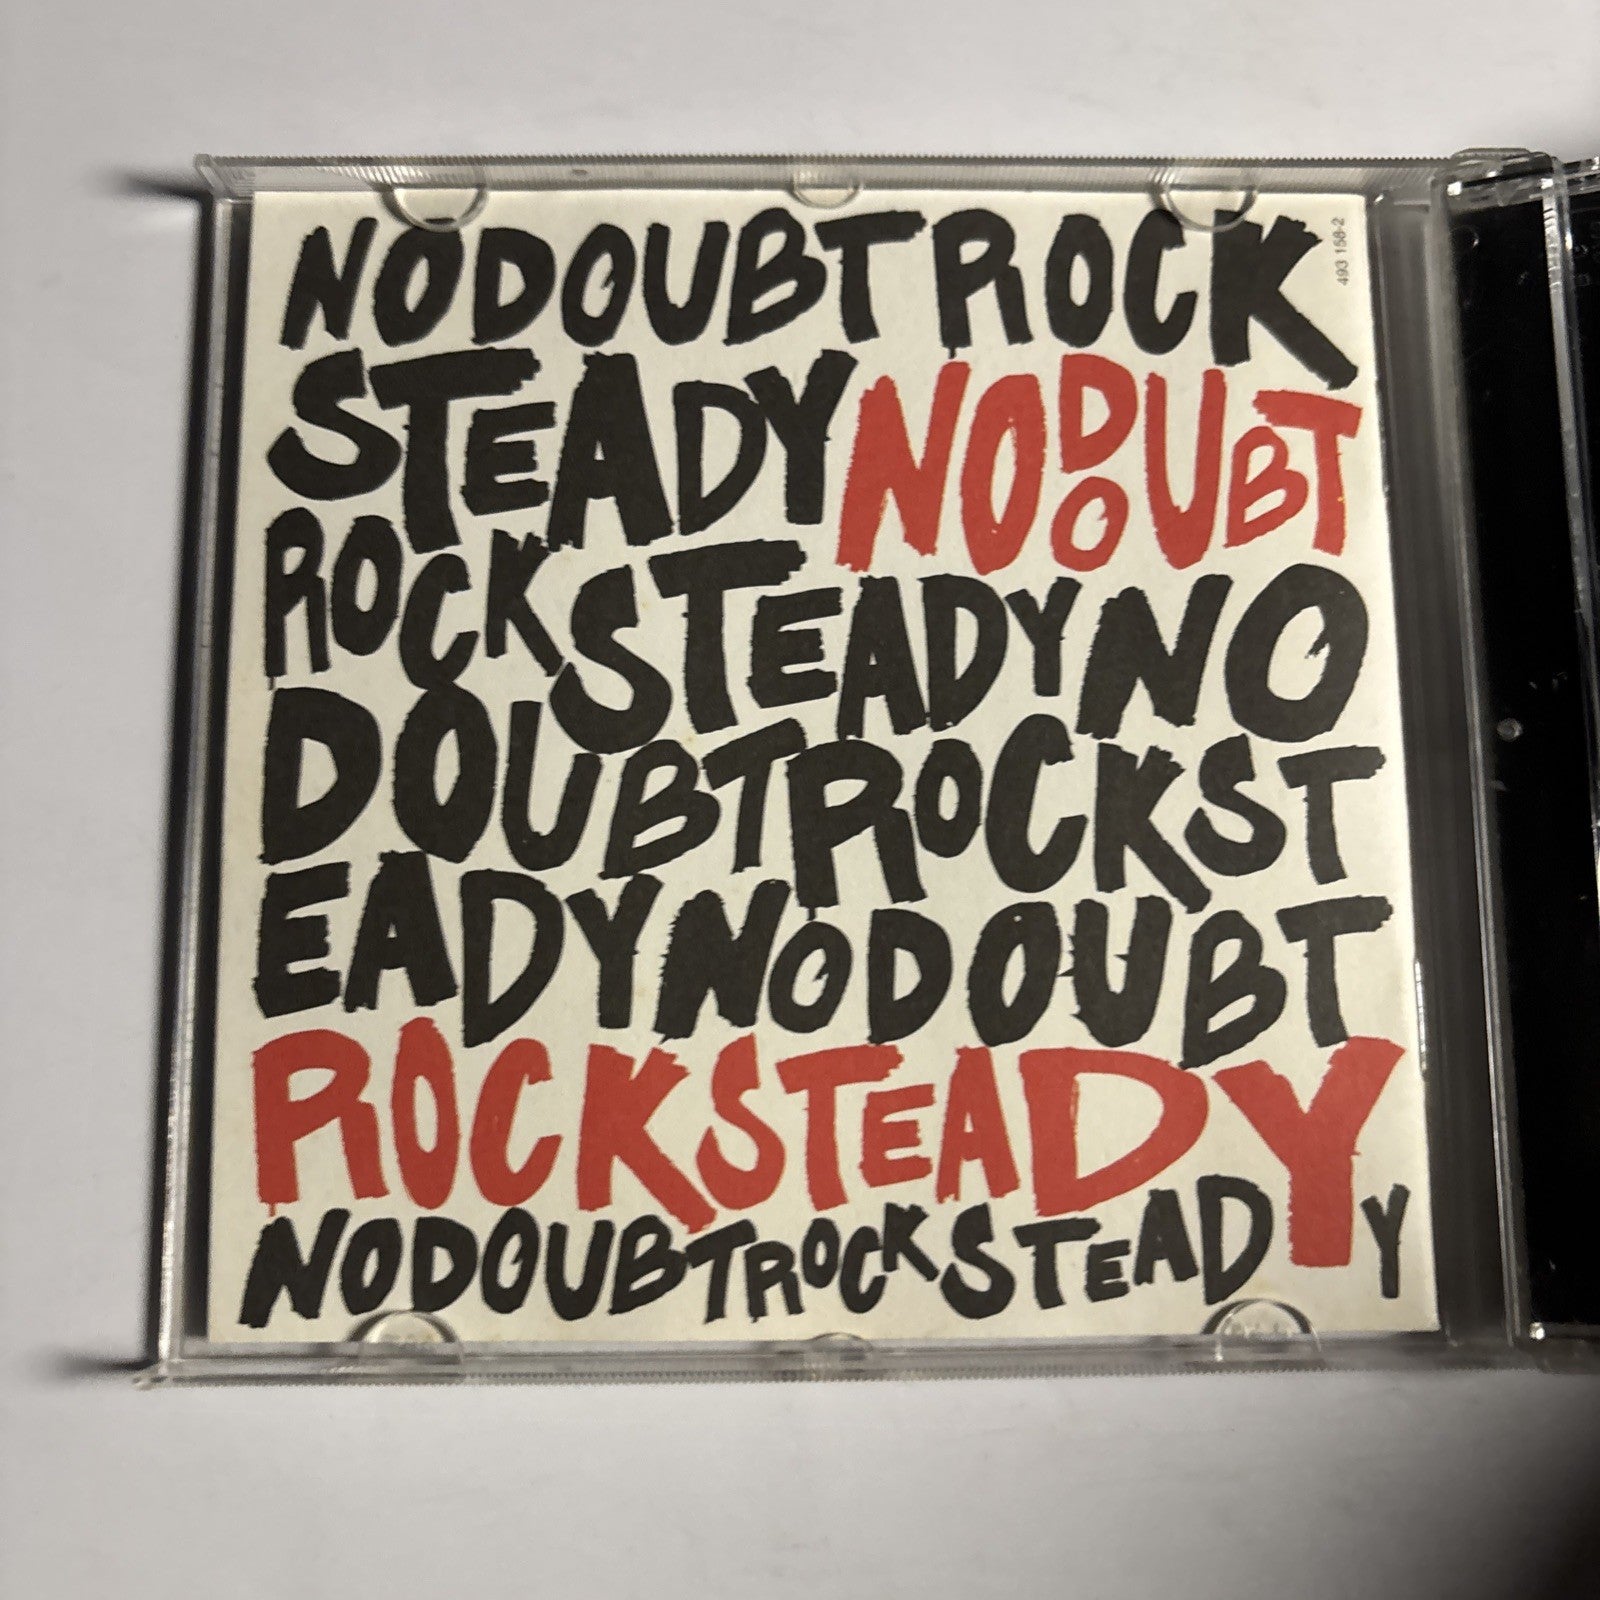 NO DOUBT ROCK
STEADY NO DOUBT
ROCK STEADY NO
DOUBT ROCK ST
EADY NO DOUBT
ROCK STEADY
NO DOUBT ROCK STEADY
493 158-2